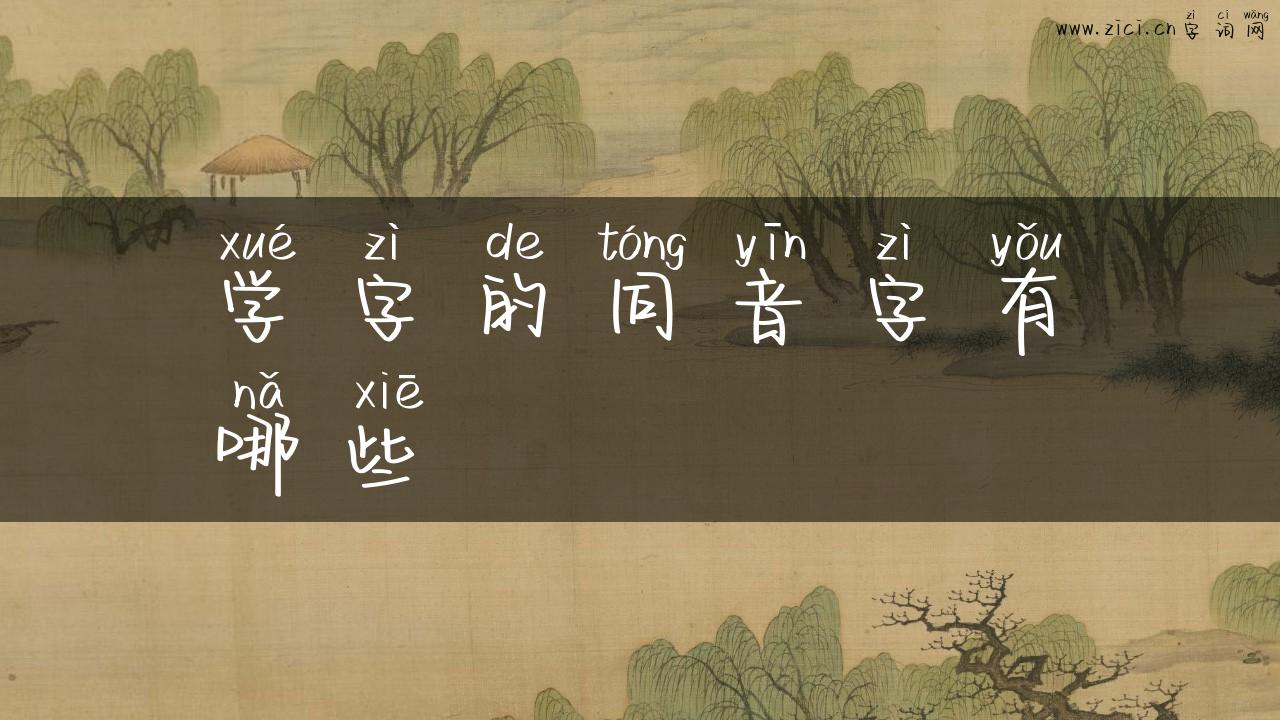 zì cí wǎng
www.zici.cn 字 词 网
xué zì de tóng yīn zì yǒu
学 字 的 同 音 字 有
nǎ xiē
哪 些